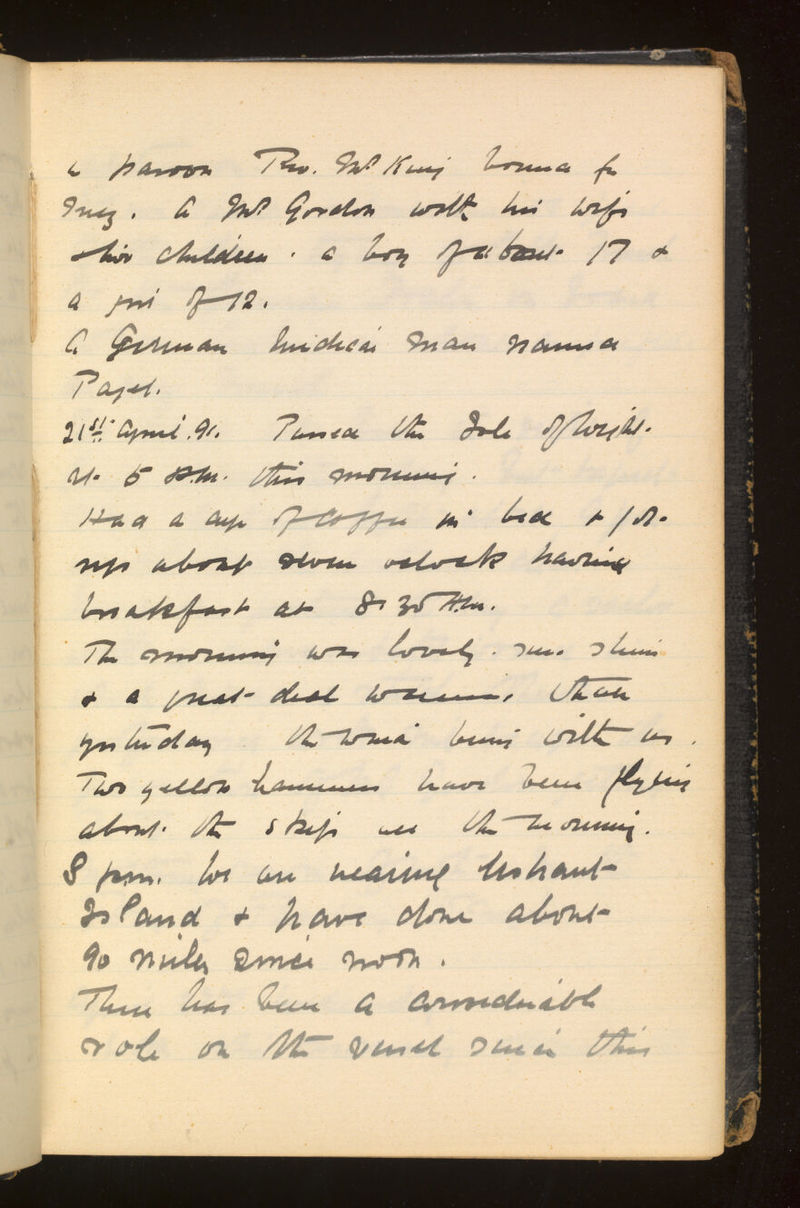 a parson Rev. Mr King bound for
Suez. A Mr Gordon with his wife
& two children. a boy of about 17 &
a girl of 12.
A German medical man named
Paget.
21st April. 91. Passed the Isle of Wight
at 5 A.M. this morning.
Had a cup of coffee in bed & got
up about seven oclock having
breakfast at 8.30 A.M.
The morning was lovely. sun shining
& a great deal warmer than
yesterday the wind being with us.
Two yellow hammers have been flying
about the ship all the morning.
8 p.m. We are nearing Ushant
Island & have done about
90 miles since noon.
There has been a considerable
role on the vessel since this